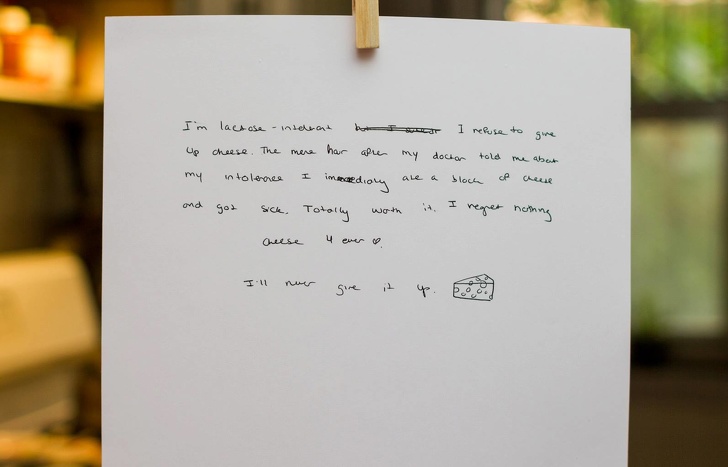 I'm lactose-intolerant I refuse to give
up cheese. The mere hair after my doctor told me about
my intolerence I immediatly ate a block of cheese
and got sick. Totally worth it. I regret nothing
cheese 4 ever ♡.
I'll never give it up.